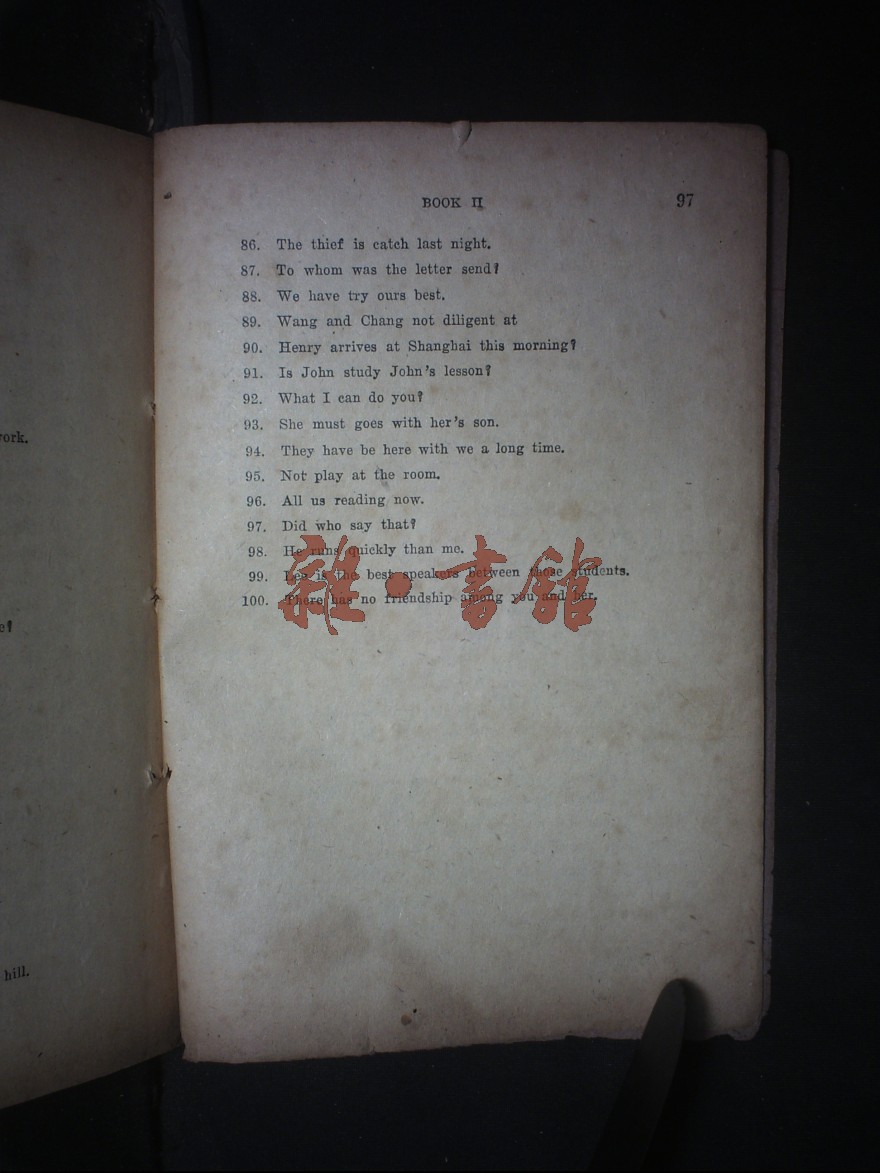 BOOK II 97
86. The thief is catch last night.
87. To whom was the letter send?
88. We have try ours best.
89. Wang and Chang not diligent at
90. Henry arrives at Shanghai this morning?
91. Is John study John's lesson?
92. What I can do you?
93. She must goes with her's son.
94. They have be here with we a long time.
95. Not play at the room.
96. All us reading now.
97. Did who say that?
98. He runs quickly than me.
99. Lee is the best speakers between those students.
100. There has no friendship among you and her.
雜·書館
ork.
e?
hill.